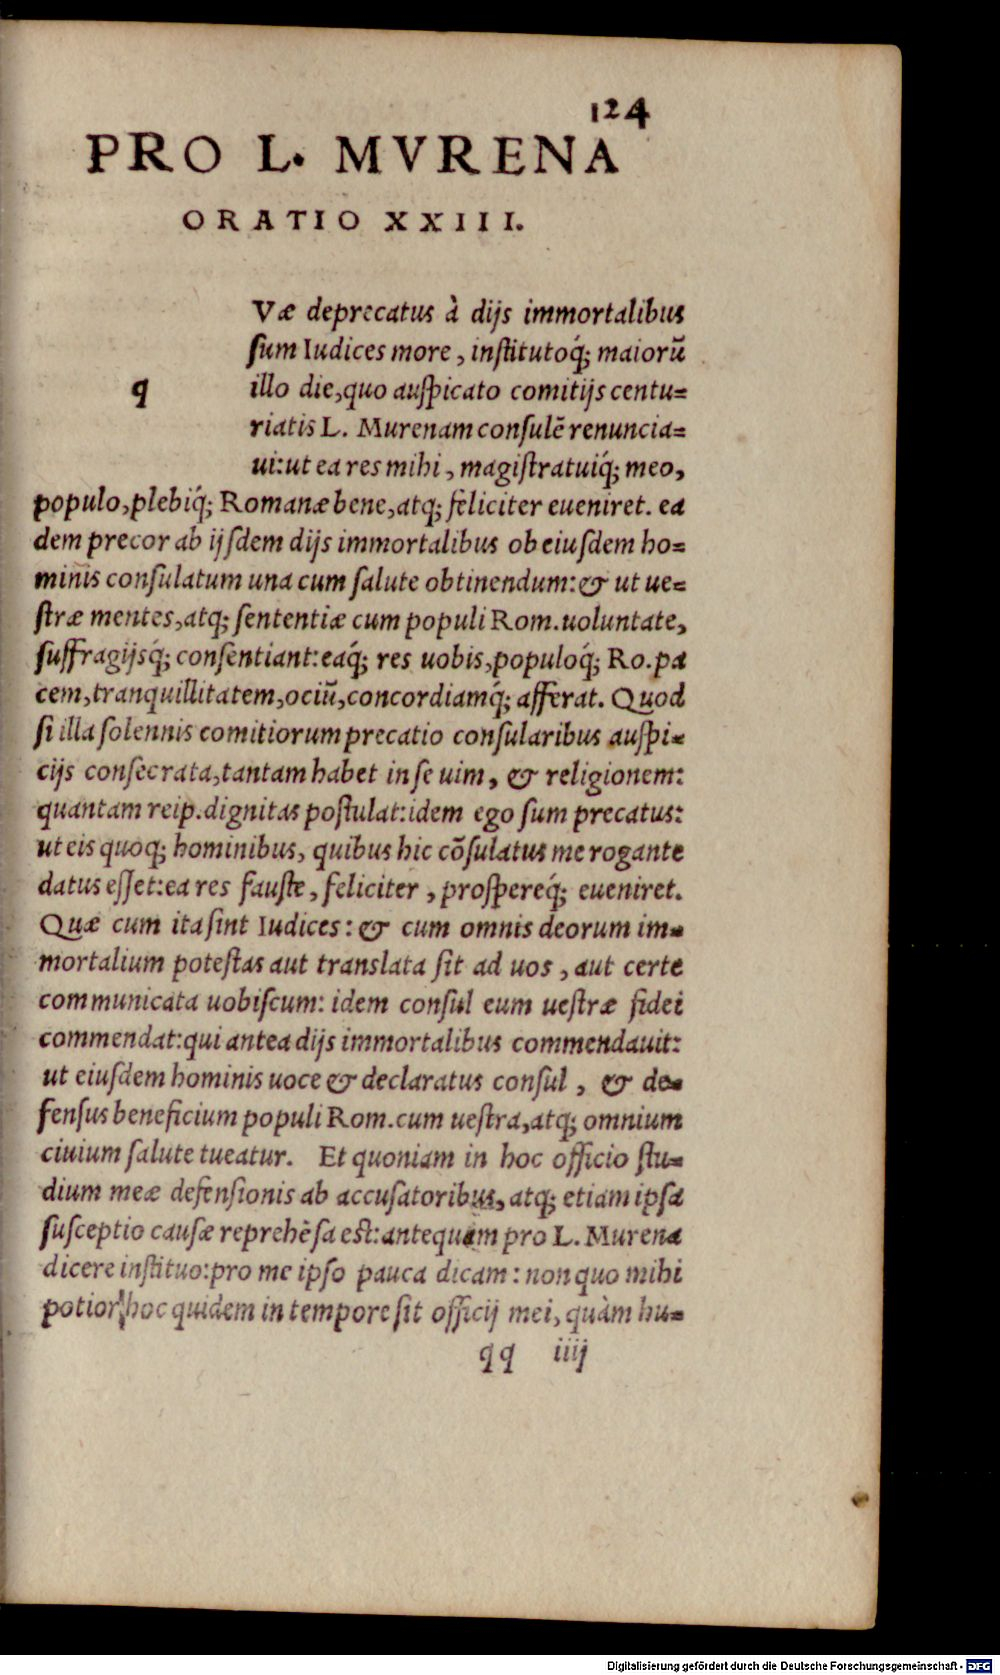 124
PRO L. MVRENA
ORATIO XXIII.
Væ deprecatus à dijs immortalibus
ſum Iudices more, inſtitutoq́; maiorū
q
illo die, quo auſpicato comitijs centu=
riatis L. Murenam conſulē renuncia=
ui: ut ea res mihi, magiſtratuiq́; meo,
populo, plebiq́; Romanæ bene, atq; feliciter eueniret. ea
dem precor ab ijſdem dijs immortalibus ob eiuſdem ho=
minis conſulatum una cum ſalute obtinendum: & ut ue=
ſtræ mentes, atq; ſententiæ cum populi Rom. uoluntate,
ſuffragijsq́; conſentiant: eaq́; res uobis, populoq́; Ro. pa
cem, tranquillitatem, ociū, concordiamq́; afferat. Quod
ſi illa ſolennis comitiorum precatio conſularibus auſpi=
cijs conſecrata, tantam habet in ſe uim, & religionem:
quantam reip. dignitas poſtulat: idem ego ſum precatus:
ut eis quoq; hominibus, quibus hic cōſulatus me rogante
datus eſſet: ea res fauſte, feliciter, proſpereq́; eueniret.
Quæ cum ita ſint Iudices: & cum omnis deorum im=
mortalium poteſtas aut translata ſit ad uos, aut certe
communicata uobiſcum: idem conſul eum ueſtræ fidei
commendat: qui antea dijs immortalibus commendauit:
ut eiuſdem hominis uoce & declaratus conſul, & de=
fenſus beneficium populi Rom. cum ueſtra, atq; omnium
ciuium ſalute tueatur. Et quoniam in hoc officio ſtu=
dium meæ defenſionis ab accuſatoribus, atq; etiam ipſa
ſuſceptio cauſæ reprehēſa eſt: antequam pro L. Murena
dicere inſtituo: pro me ipſo pauca dicam: non quo mihi
potior hoc quidem in tempore ſit officij mei, quàm hu=
qq iiij
Digitalisierung gefördert durch die Deutsche Forschungsgemeinschaft - DFG